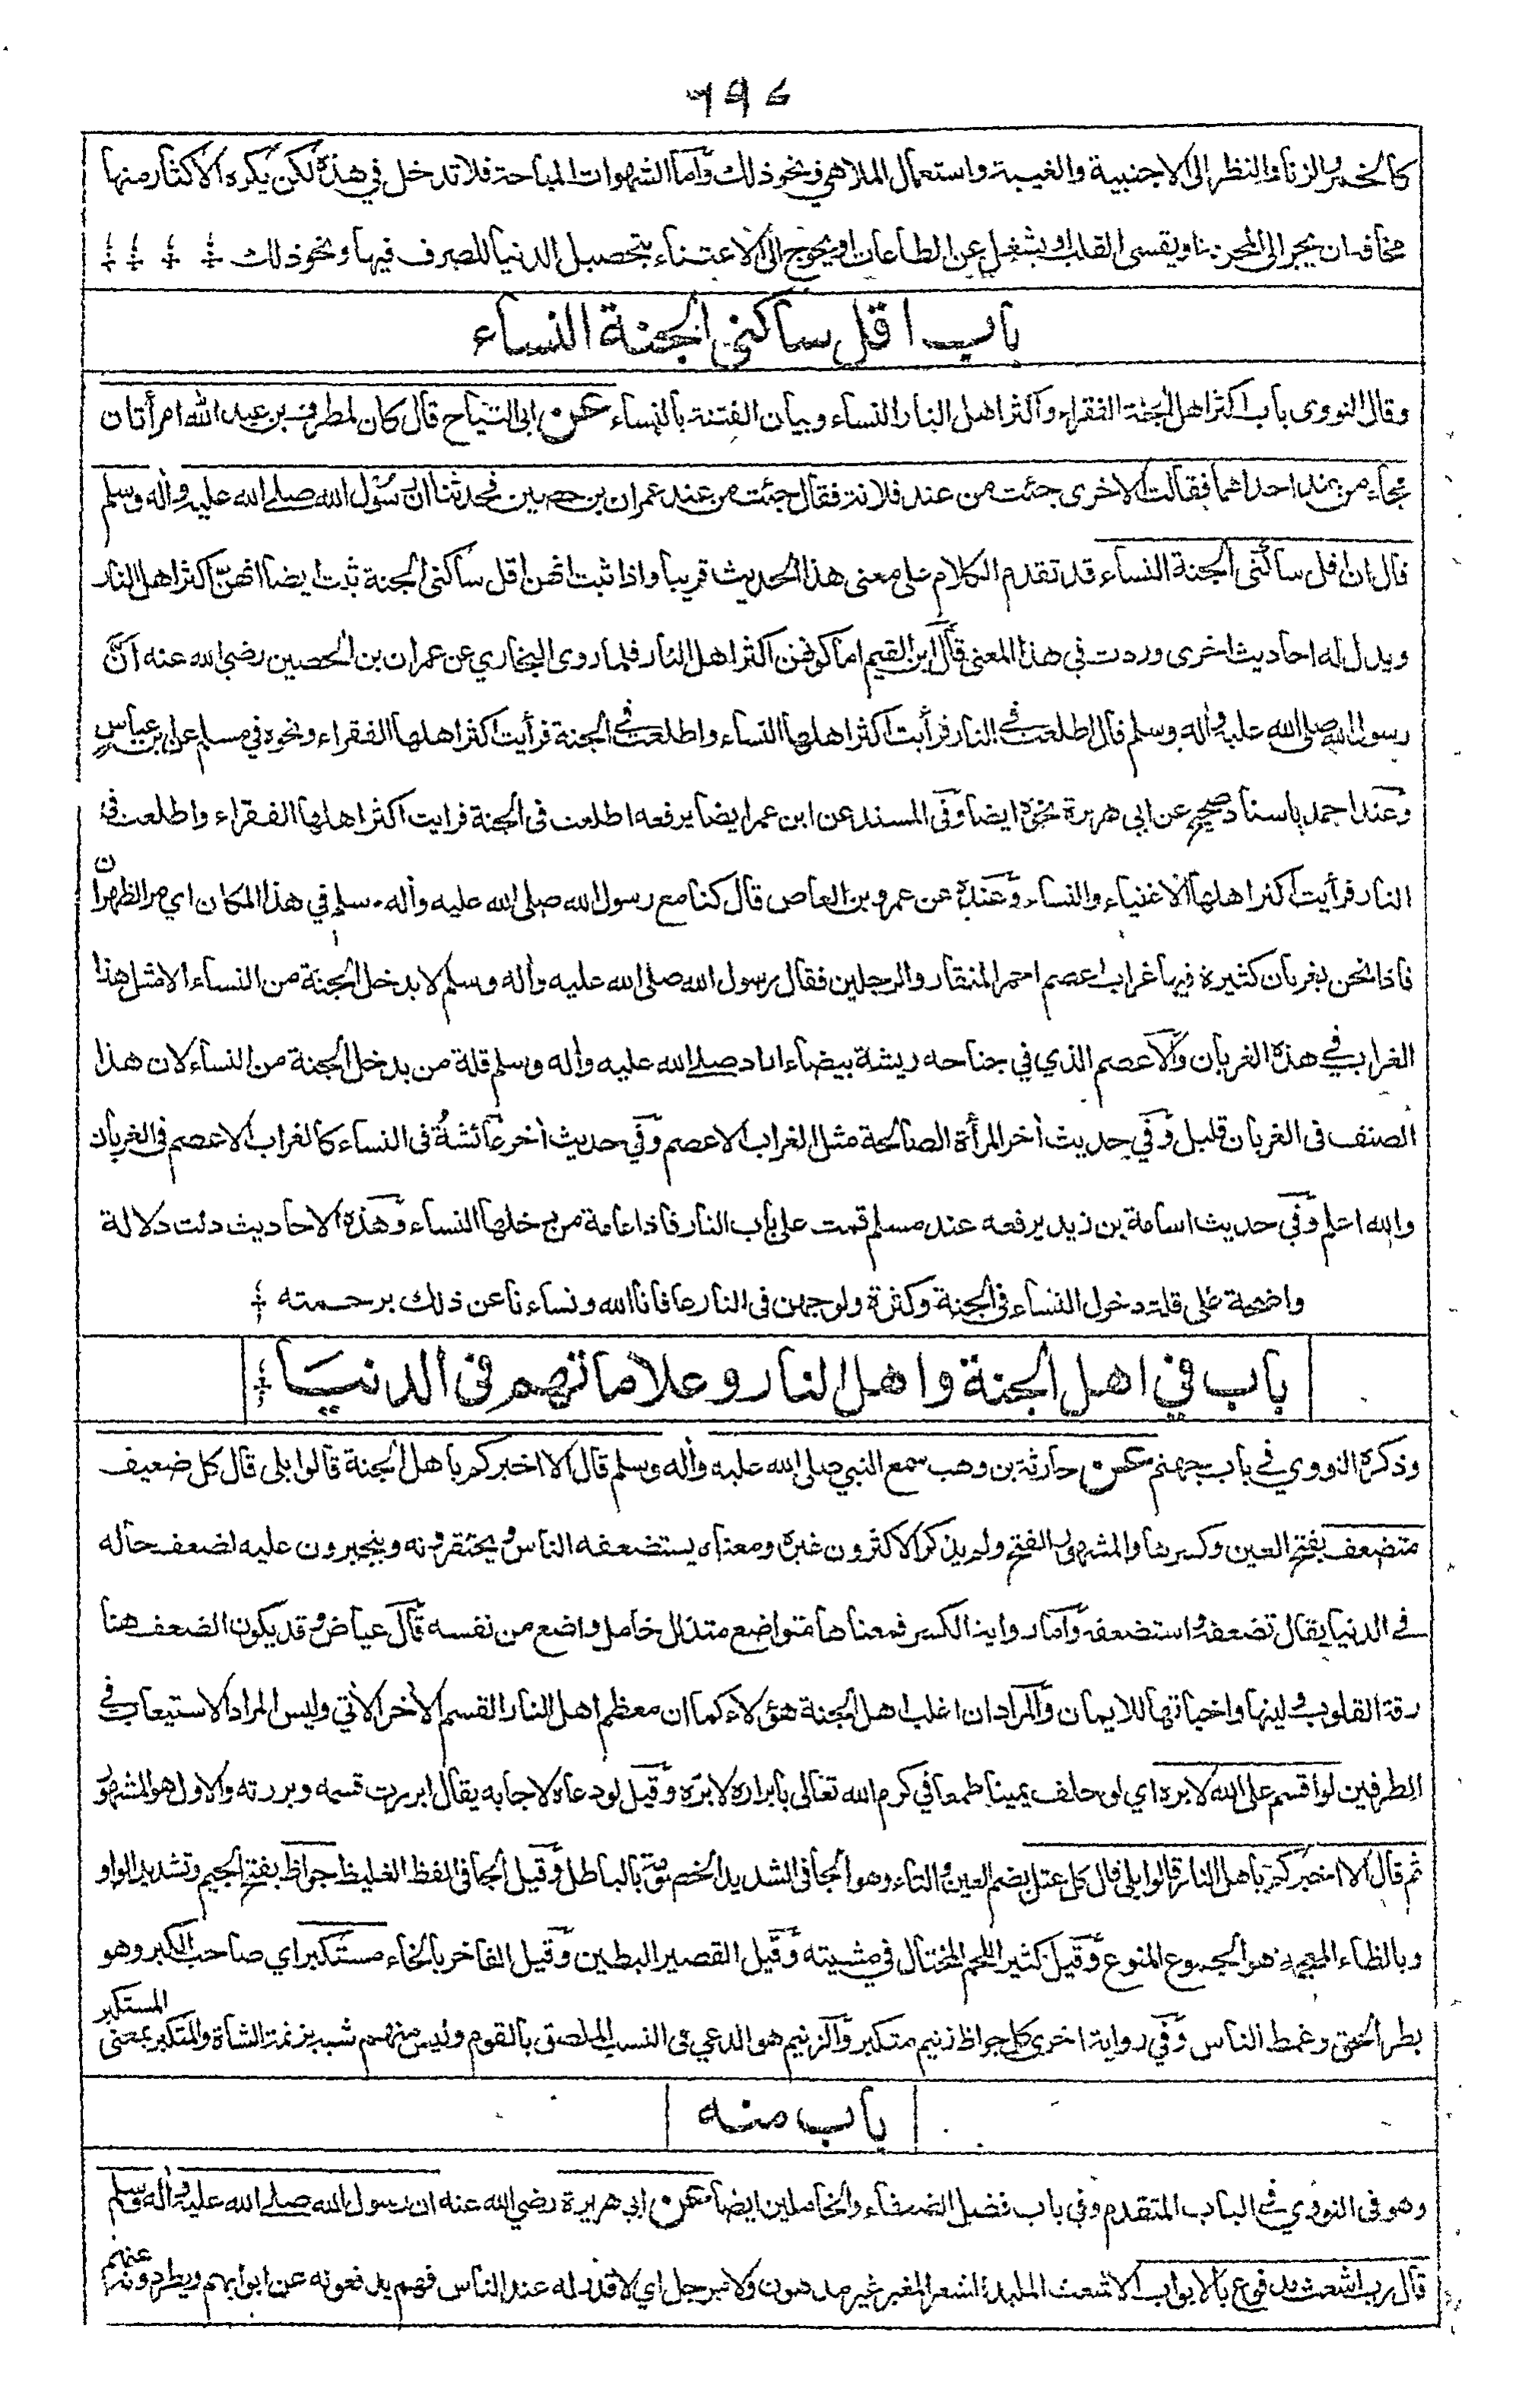 ٦٩٤
كالخمر والزنا والنظر إلى الاجنبية والغيبة واستعمال الملاهي ونحو ذلك وأما الشهوات المباحة فلا تدخل في هذه لكن يكره الاكثار منها
مخافة ان يجر الى المحرمة او يقسى القلب او يشغل عن الطاعات او يحوج الى الاعتناء بتحصيل الدنيا للصرف فيها ونحو ذلك
باب اقل ساكني الجنة النساء
وقال النووي باب اكثر اهل الجنة الفقراء واكثر اهل النار النساء وبيان الفتنة بالنساء عن ابى التياح قال كان لمطرف بن عبد الله امرأتان
فجاء من عند احداهما فقالت الاخرى جئت من عند فلانة فقال جئت من عند عمران بن حصين فحدثنا ان رسول الله صلى الله عليه وأله وسلم
قال ان اقل ساكنى الجنة النساء قد تقدم الكلام على معنى هذا الحديث قريبا واذا ثبت انهن اقل ساكنى الجنة ثبت ايضا انهن اكثر اهل النار
ويدل له احاديث اخرى وردت في هذا المعنى قال ابن القيم اما كونهن اكثر اهل النار فلما روى البخاري عن عمران بن الحصين رضي الله عنه ان
رسول الله صلى الله عليه وأله وسلم قال اطلعت في النار فرأيت اكثر اهلها النساء واطلعت في الجنة فرأيت اكثر اهلها الفقراء ونحوه في مسلم عن ابن عباس
وعند احمد باسناد صحيح عن ابي هريرة نحوه ايضا وفى المسند عن ابن عمر ايضا يرفعه اطلعت فى الجنة فرايت اكثر اهلها الفقراء واطلعت فى
النار فرأيت اكثر اهلها الاغنياء والنساء وعنده عن عمرو بن العاص قال كنا مع رسول الله صلى الله عليه وأله وسلم في هذا المكان اي مر الظهران
فاذا نحن بغربان كثيرة فيها غراب اعصم احمر المنقار والرجلين فقال رسول الله صلى الله عليه وأله وسلم لا يدخل الجنة من النساء الا مثل هذا
الغراب في هذه الغربان والاعصم الذي في جناحه ريشة بيضاء اراد صلى الله عليه وأله وسلم قلة من يدخل الجنة من النساء لان هذا
الصنف فى الغربان قليل وفي حديث أخر المرأة الصالحة مثل الغراب الاعصم وفي حديث أخر عائشة فى النساء كالغراب الاعصم فى الغربان
والله اعلم وفي حديث اسامة بن زيد يرفعه عند مسلم قمت على باب النار فاذا عامة من دخلها النساء وهذه الاحاديث دلت دلالة
واضحة على قلة دخول النساء في الجنة وكثرة ولوجهن فى النار عافانا الله ونساءنا عن ذلك برحمته
باب في اهل الجنة واهل النار وعلاماتهم في الدنيا
وذكره النووي في باب جهنم عن حارثة بن وهب سمع النبي صلى الله عليه وأله وسلم قال الا اخبركم باهل الجنة قالوا بلى قال كل ضعيف
متضعف بفتح العين وكسرها والمشهور الفتح ولم يذكر الاكثرون غيره ومعناه يستضعفه الناس ويحتقرونه ويتجبرون عليه لضعف حاله
في الدنيا يقال تضعفه واستضعفه وأما رواية الكسر فمعناها متواضع متذلل خامل واضع من نفسه قال عياض وقد يكون الضعف هنا
رقة القلوب ولينها واخباتها للايمان والمراد ان اغلب اهل الجنة هؤلاء كما ان معظم اهل النار القسم الأخر الأتي وليس المراد الاستيعاب في
الطرفين لو أقسم على الله لابره اي لو حلف يمينا طمعا في كرم الله تعالى بابراره لابره وقيل لو دعاه لاجابه يقال ابررت قسمه وبررته والاول هو المشهور
ثم قال الا اخبركم باهل النار قالوا بلى قال كل عتل بضم العين والتاء وهو الجافى الشديد الخصومة بالباطل وقيل الجافى الفظ الغليظ جواظ بفتح الجيم وتشديد الواو
وبالظاء المعجمة هو الجموع المنوع وقيل كثير اللحم المختال في مشيته وقيل القصير البطين وقيل الفاخر بالخاء مستكبر اي صاحب الكبر وهو
بطر الحق وغمط الناس وفي رواية اخرى كل جواظ زنيم متكبر والزنيم هو الدعي فى النسب الملصق بالقوم وليس منهم شبه بزنمة الشاة والمتكبر بمعنى المستكبر
باب منه
وهو فى النووي في الباب المتقدم وفي باب فضل الضعفاء والخاملين ايضا عن ابي هريرة رضي الله عنه ان رسول الله صلى الله عليه وأله وسلم
قال رب اشعث مدفوع بالابواب الاشعث الملبد الشعر المغبر غير مدهون ولا مرجل اي لا قدر له عند الناس فهم يدفعونه عن ابوابهم ويطردونه عنهم